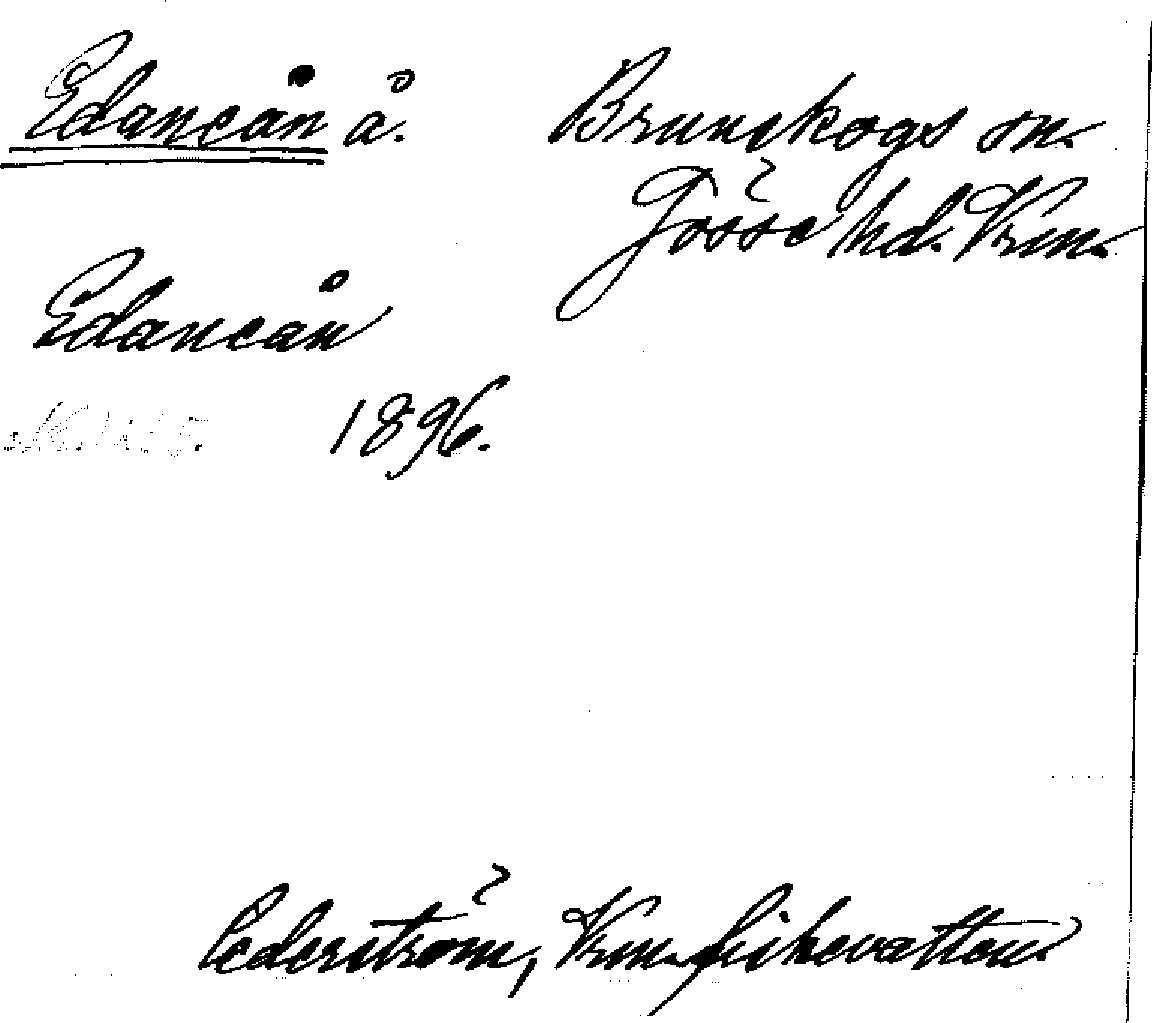 Edaneån å. Brunskogs sn.
Jösse hd. Vrm.
Edaneån
1896.
Cederström, Vrm. fiskevatten